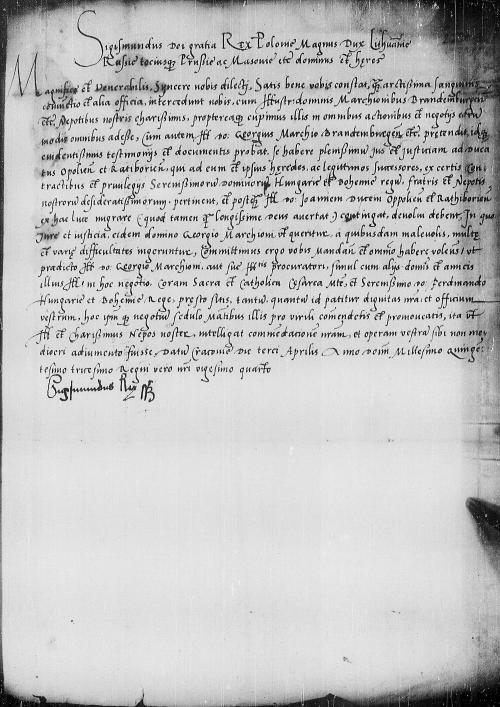 Sigismundus Dei gratia Rex Polonie Magnus Dux Lithuanie
Russie tociusqz Prussie ac Masovie etc dominus et heres
Magnifice et Venerabilis, syncere nobis dilecti, Satis bene vobis constat, quam arctissima sanguinis
coniunctio et alia officia, intercedunt nobis, cum Illustr: dominis Marchionibus Brandemburgen
etc Nepotibus nostris charissimis, propterea cupimus illis in omnibus actionibus et negotijs
modis omnibus adesse, Cum autem Ill: do: Georgius Marchio Brandemburgen etc pretendit, idqz
evidentissimis testimonijs et documentis probat, se habere plenissimu jus et justiciam ad Duca
tus Opolien et Ratiborien, qui ad eum et ipsius heredes, ac legittimos successores, ex certis con
tractibus et privilegijs Serenissimoru dominoru Hungarie et Bohemie regu, fratris et Nepotis
nostroru desideratissimorum, pertinent, et postqz Ill: do: Joannem Ducem Oppolien et Rathiborien
ex hac luce migrare (quod tamen qz longissime Deus avertat) contingat, devolvi debent, In quo
Jure et iusticia, eidem domino Georgio Marchioni et queritur, a quibusdam malevolis, multe
et varie difficultates ingeruntur, Committimus ergo vobis Mandan et omnino habere volentes, ut
predicto Ill: do: Georgio Marchioni, aut sue procuratori, simul cum alijs domis et amicis
illius in hoc negotio, Coram Sacra et Catholica Cesarea Mte, et Serenissimo do: Ferdinando
Hungarie et Bohemie Rege, presto sitis, tantu, quantu id patitur dignitas nra, et officium
vestrum, hoc ipm qz negotiu sedulo Matibus illis pro virili comendetis et promoveatis, ita ut
Ill: et Charissimus Nepos noster, intelligat commendationem nram, et operam vestra sibi non me
diocri adiumento fuisse, Datu Cracovie die terci Aprilis Anno domi Millesimo Quinge
tesimo tricesimo Regni vero nri vigesimo quarto
Sigismundus Rex